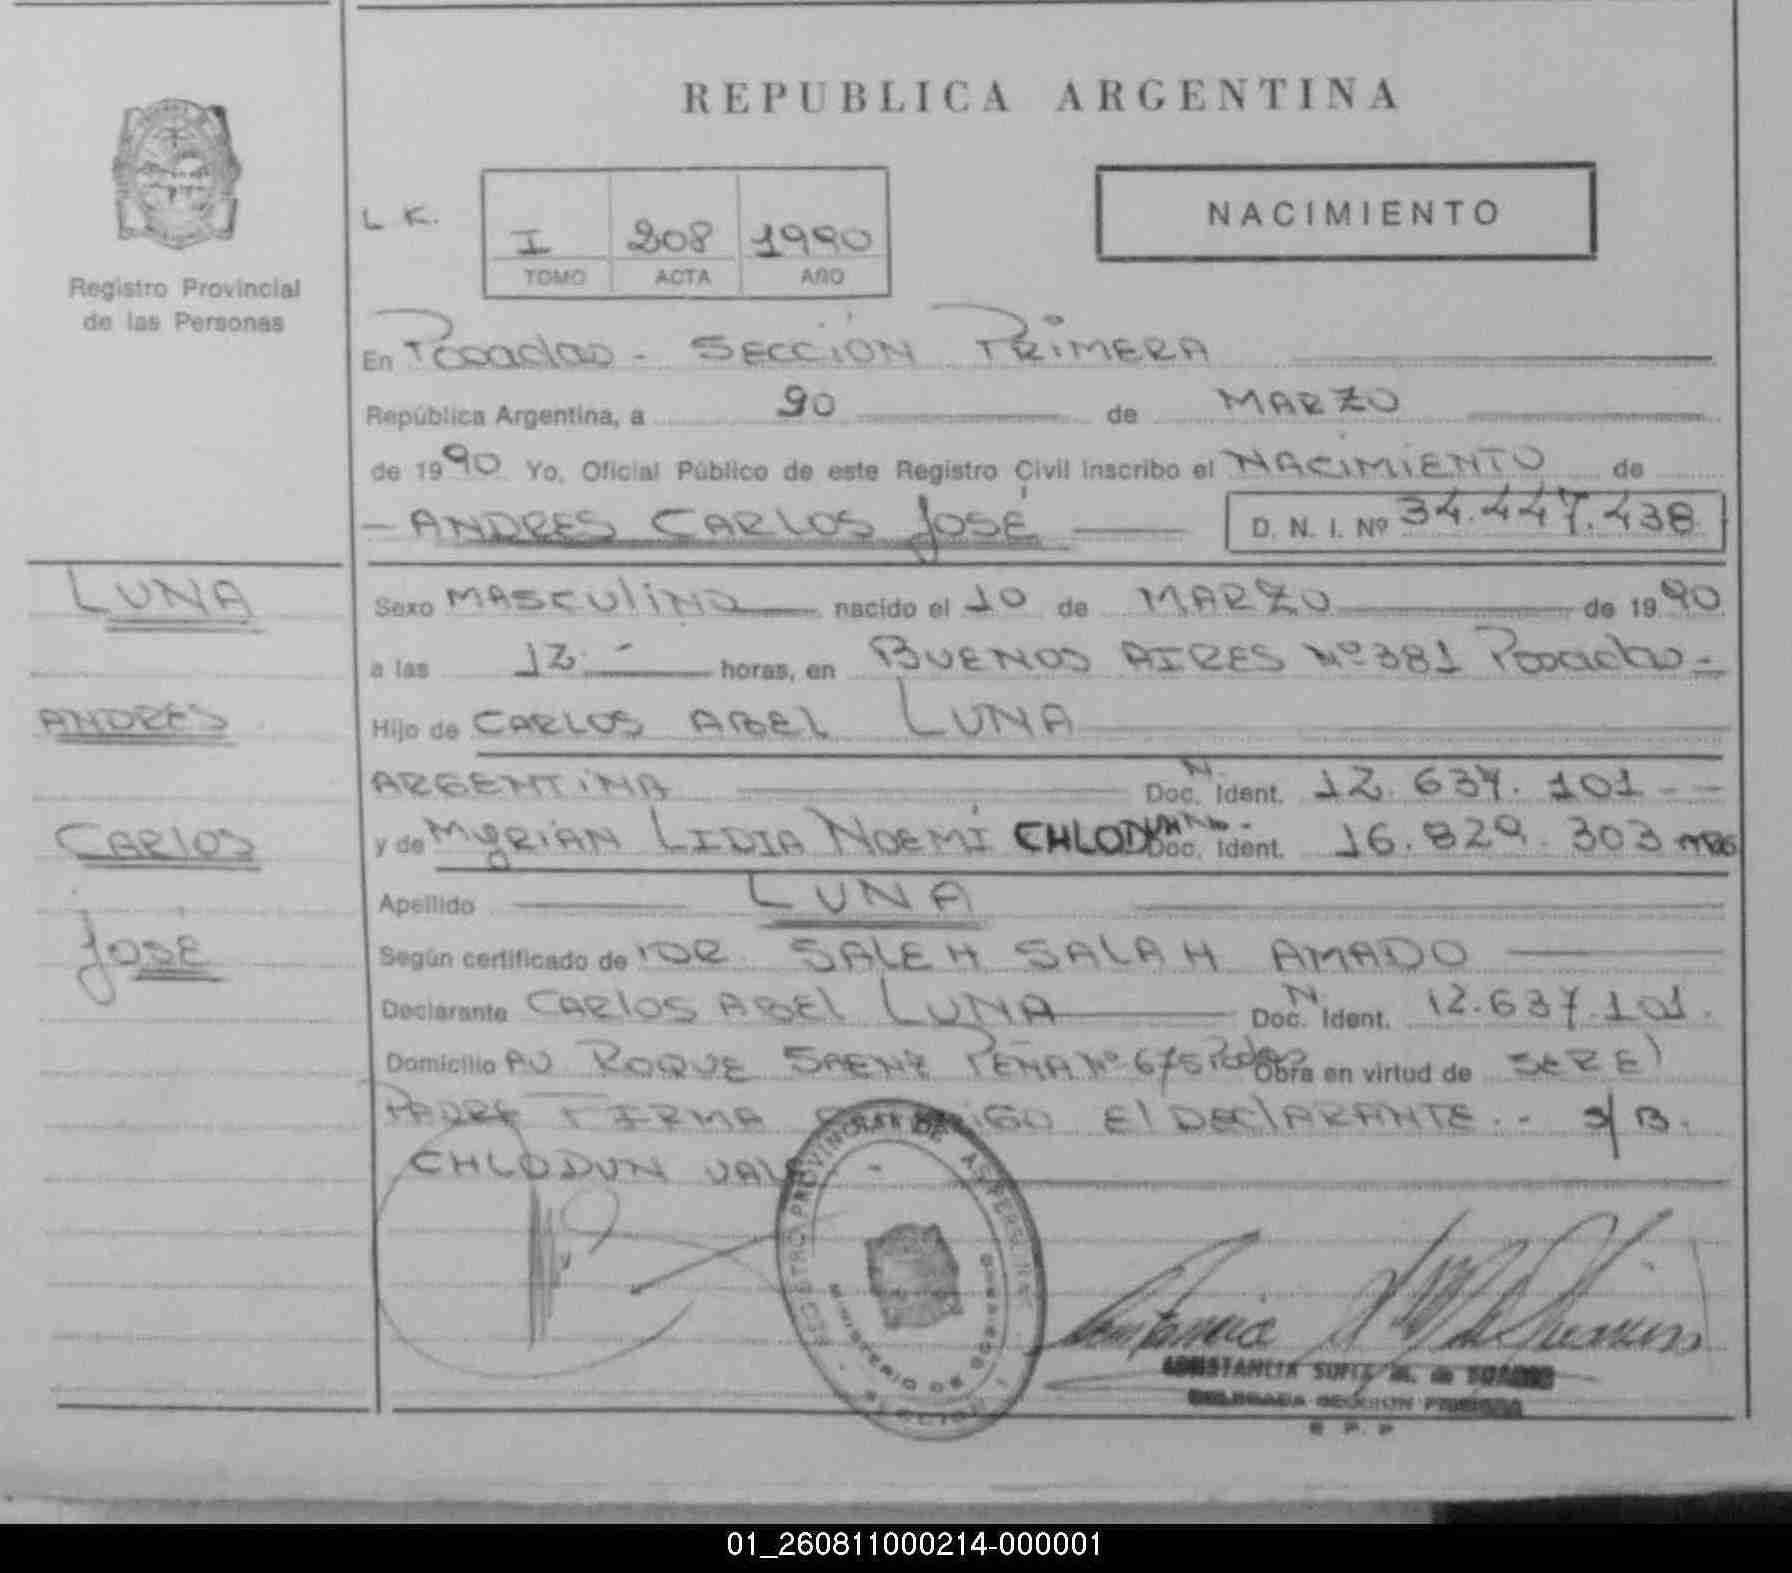 REPUBLICA ARGENTINA
NACIMIENTO
L K.
I 208 1990
TOMO ACTA AÑO
Registro Provincial
de las Personas
En Posadas - SECCION PRIMERA
República Argentina, a 90 de MARZO
de 1990 Yo, Oficial Público de este Registro Civil inscribo el NACIMIENTO de
- ANDRES CARLOS JOSÉ D. N. I. Nº 34.447.438
LUNA
ANDRES
CARLOS
JOSE
Sexo MASCULINO nacido el 10 de MARZO de 1990
a las 12.- horas, en BUENOS AIRES Nº 381 Posadas -
Hijo de CARLOS ABEL LUNA
ARGENTINA N. Doc. Ident. 12.637.101 - -
y de MYRIAN LIDIA NOEMI CHLODUN Doc. Ident. 16.829.303
Apellido LUNA
Según certificado de DR. SALEH SALAH AMADO
Declarante CARLOS ABEL LUNA N. Doc. Ident. 12.637.101.
Domicilio AV ROQUE SAENZ PEÑA Nº 675 Pdas Obra en virtud de SER El
PADRE FIRMA El DEClARANTE.- S/B.
CHLODUN VALE
REGISTRO PROVINCIAL DE
MINISTERIO DE GOBIERNO
SECCION
CONSTANCIA SOFIA M. de SUAREZ
DELEGADA SECCION PRIMERA
R. P. P
01_260811000214-000001